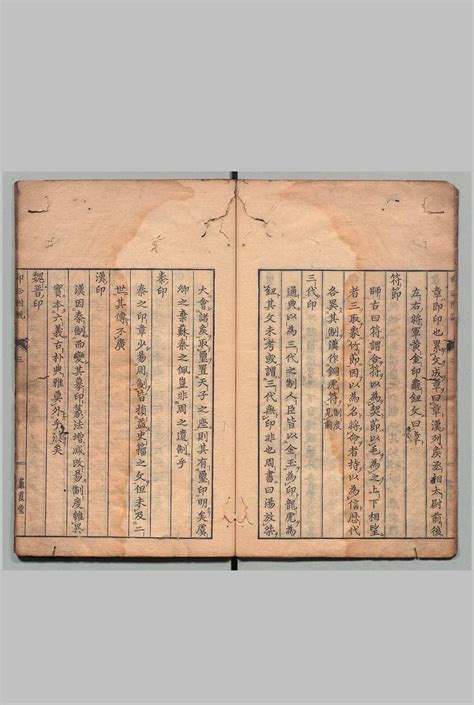 章即印也異文成章曰章漢列矦丞相太尉前後
左右將軍黃金印龜鈕文曰章
符節
師古曰符謂合符以為契節以毛為之上下相重
者三取象竹節因以為名將命者持以為信歴代
各異其制漢作銅虎符制度見前
三代印
通典以為三代之制人臣皆以金玉為印龍虎為
鈕其文未考或謂三代無印非也周書曰湯放桀
大會諸矦取璽置天子之座則其有璽印明矣虞
卿之棄蘇秦之佩豈非周之遺制乎
秦印
秦之印章少易周制皆損益史籀之文但未及二
世其傳不廣
漢印
漢因秦制而變其摹印篆法增減改易制度雖異
實本六義古朴典雅莫外乎漢矣
魏晉印
三
巖霞堂